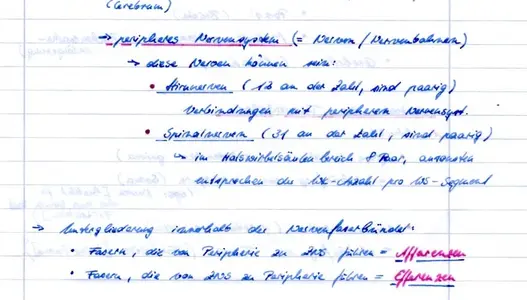 (Cerebrum)
→ peripheres Nervensystem (= Nerven / Nervenbahnen)
→ diese Nerven können sein:
• Hirnnerven (12 an der Zahl, sind paarig)
Verbindungen mit peripherem Nervensyst.
• Spinalnerven (31 an der Zahl, sind paarig)
↳ im Halswirbelsäulenbereich 8 Paar, ansonsten
entsprechen die WK-Anzahl pro WS-Segment
→ Untergliederung innerhalb der Nervenfaserbündel:
• Fasern, die von Peripherie zu ZNS führen = Afferenzen
• Fasern, die von ZNS zu Peripherie führen = Efferenzen